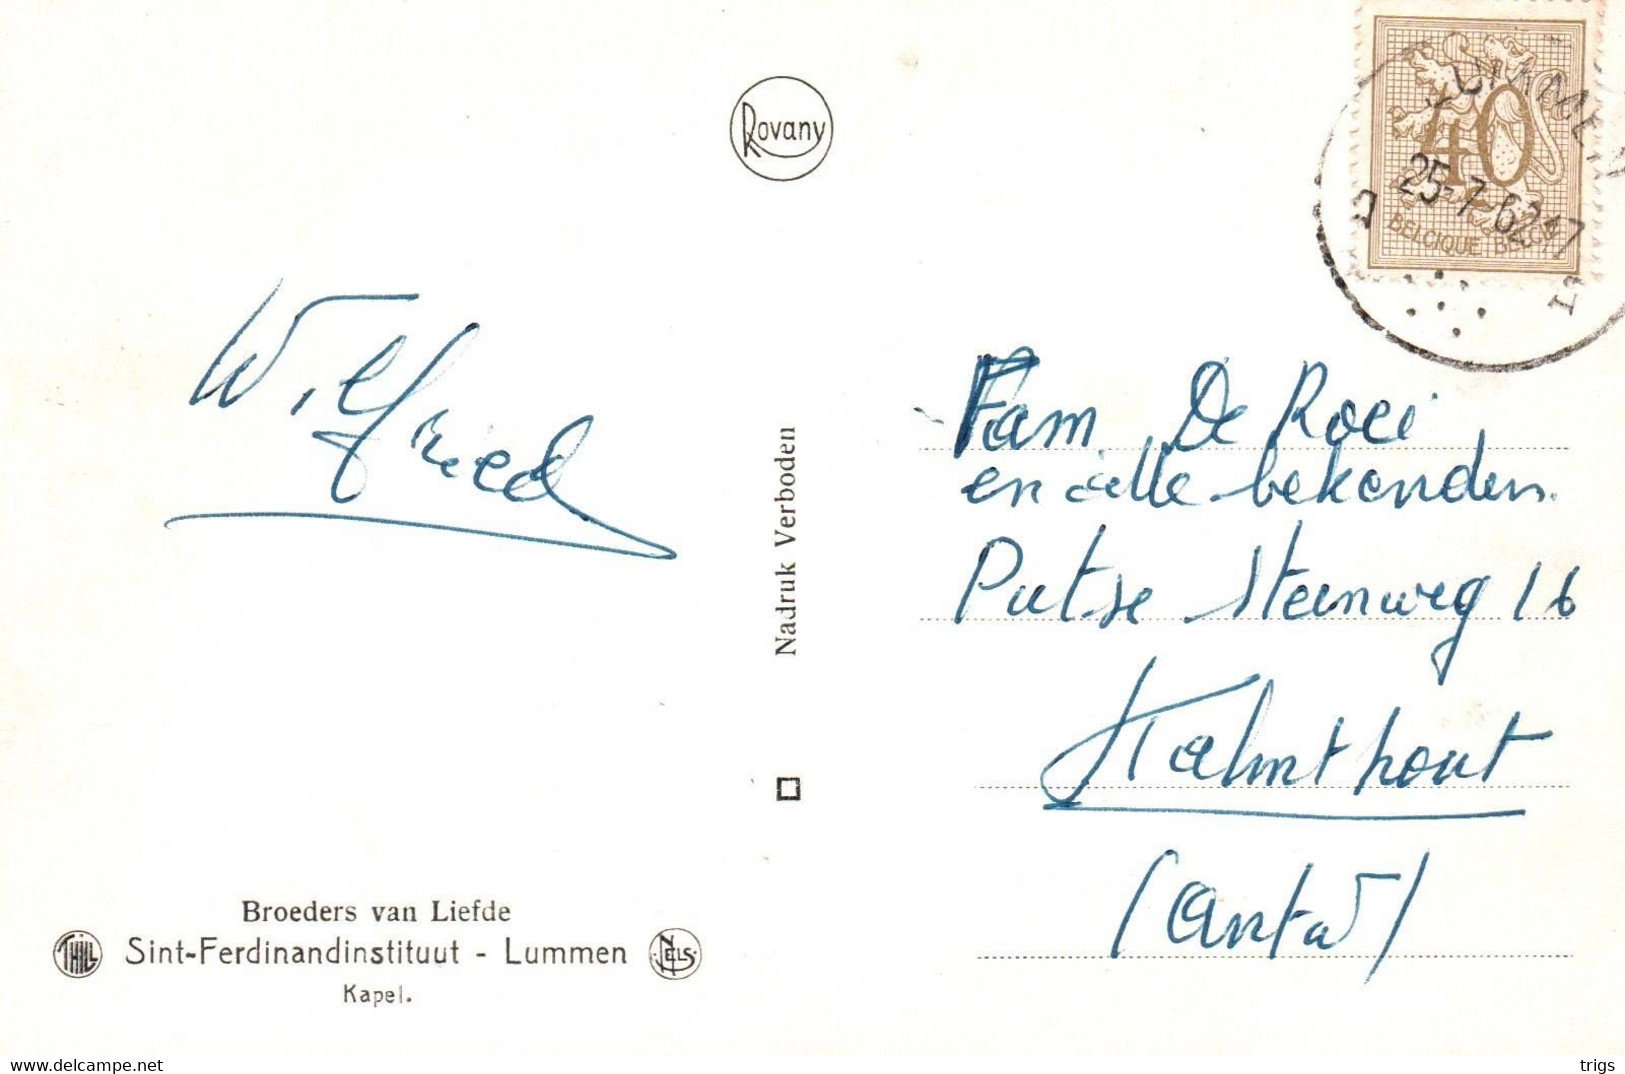 Rovany
LUMMEN
25-7-62 17
40
BELGIQUE BELGIË
Wilfried
Fam De Roei
en alle bekenden.
Putse steenweg 16
Kalmthout
(Antw)
Nadruk Verboden
Broeders van Liefde
THILL Sint-Ferdinandinstituut - Lummen NELS
Kapel.
www.delcampe.net
trigs